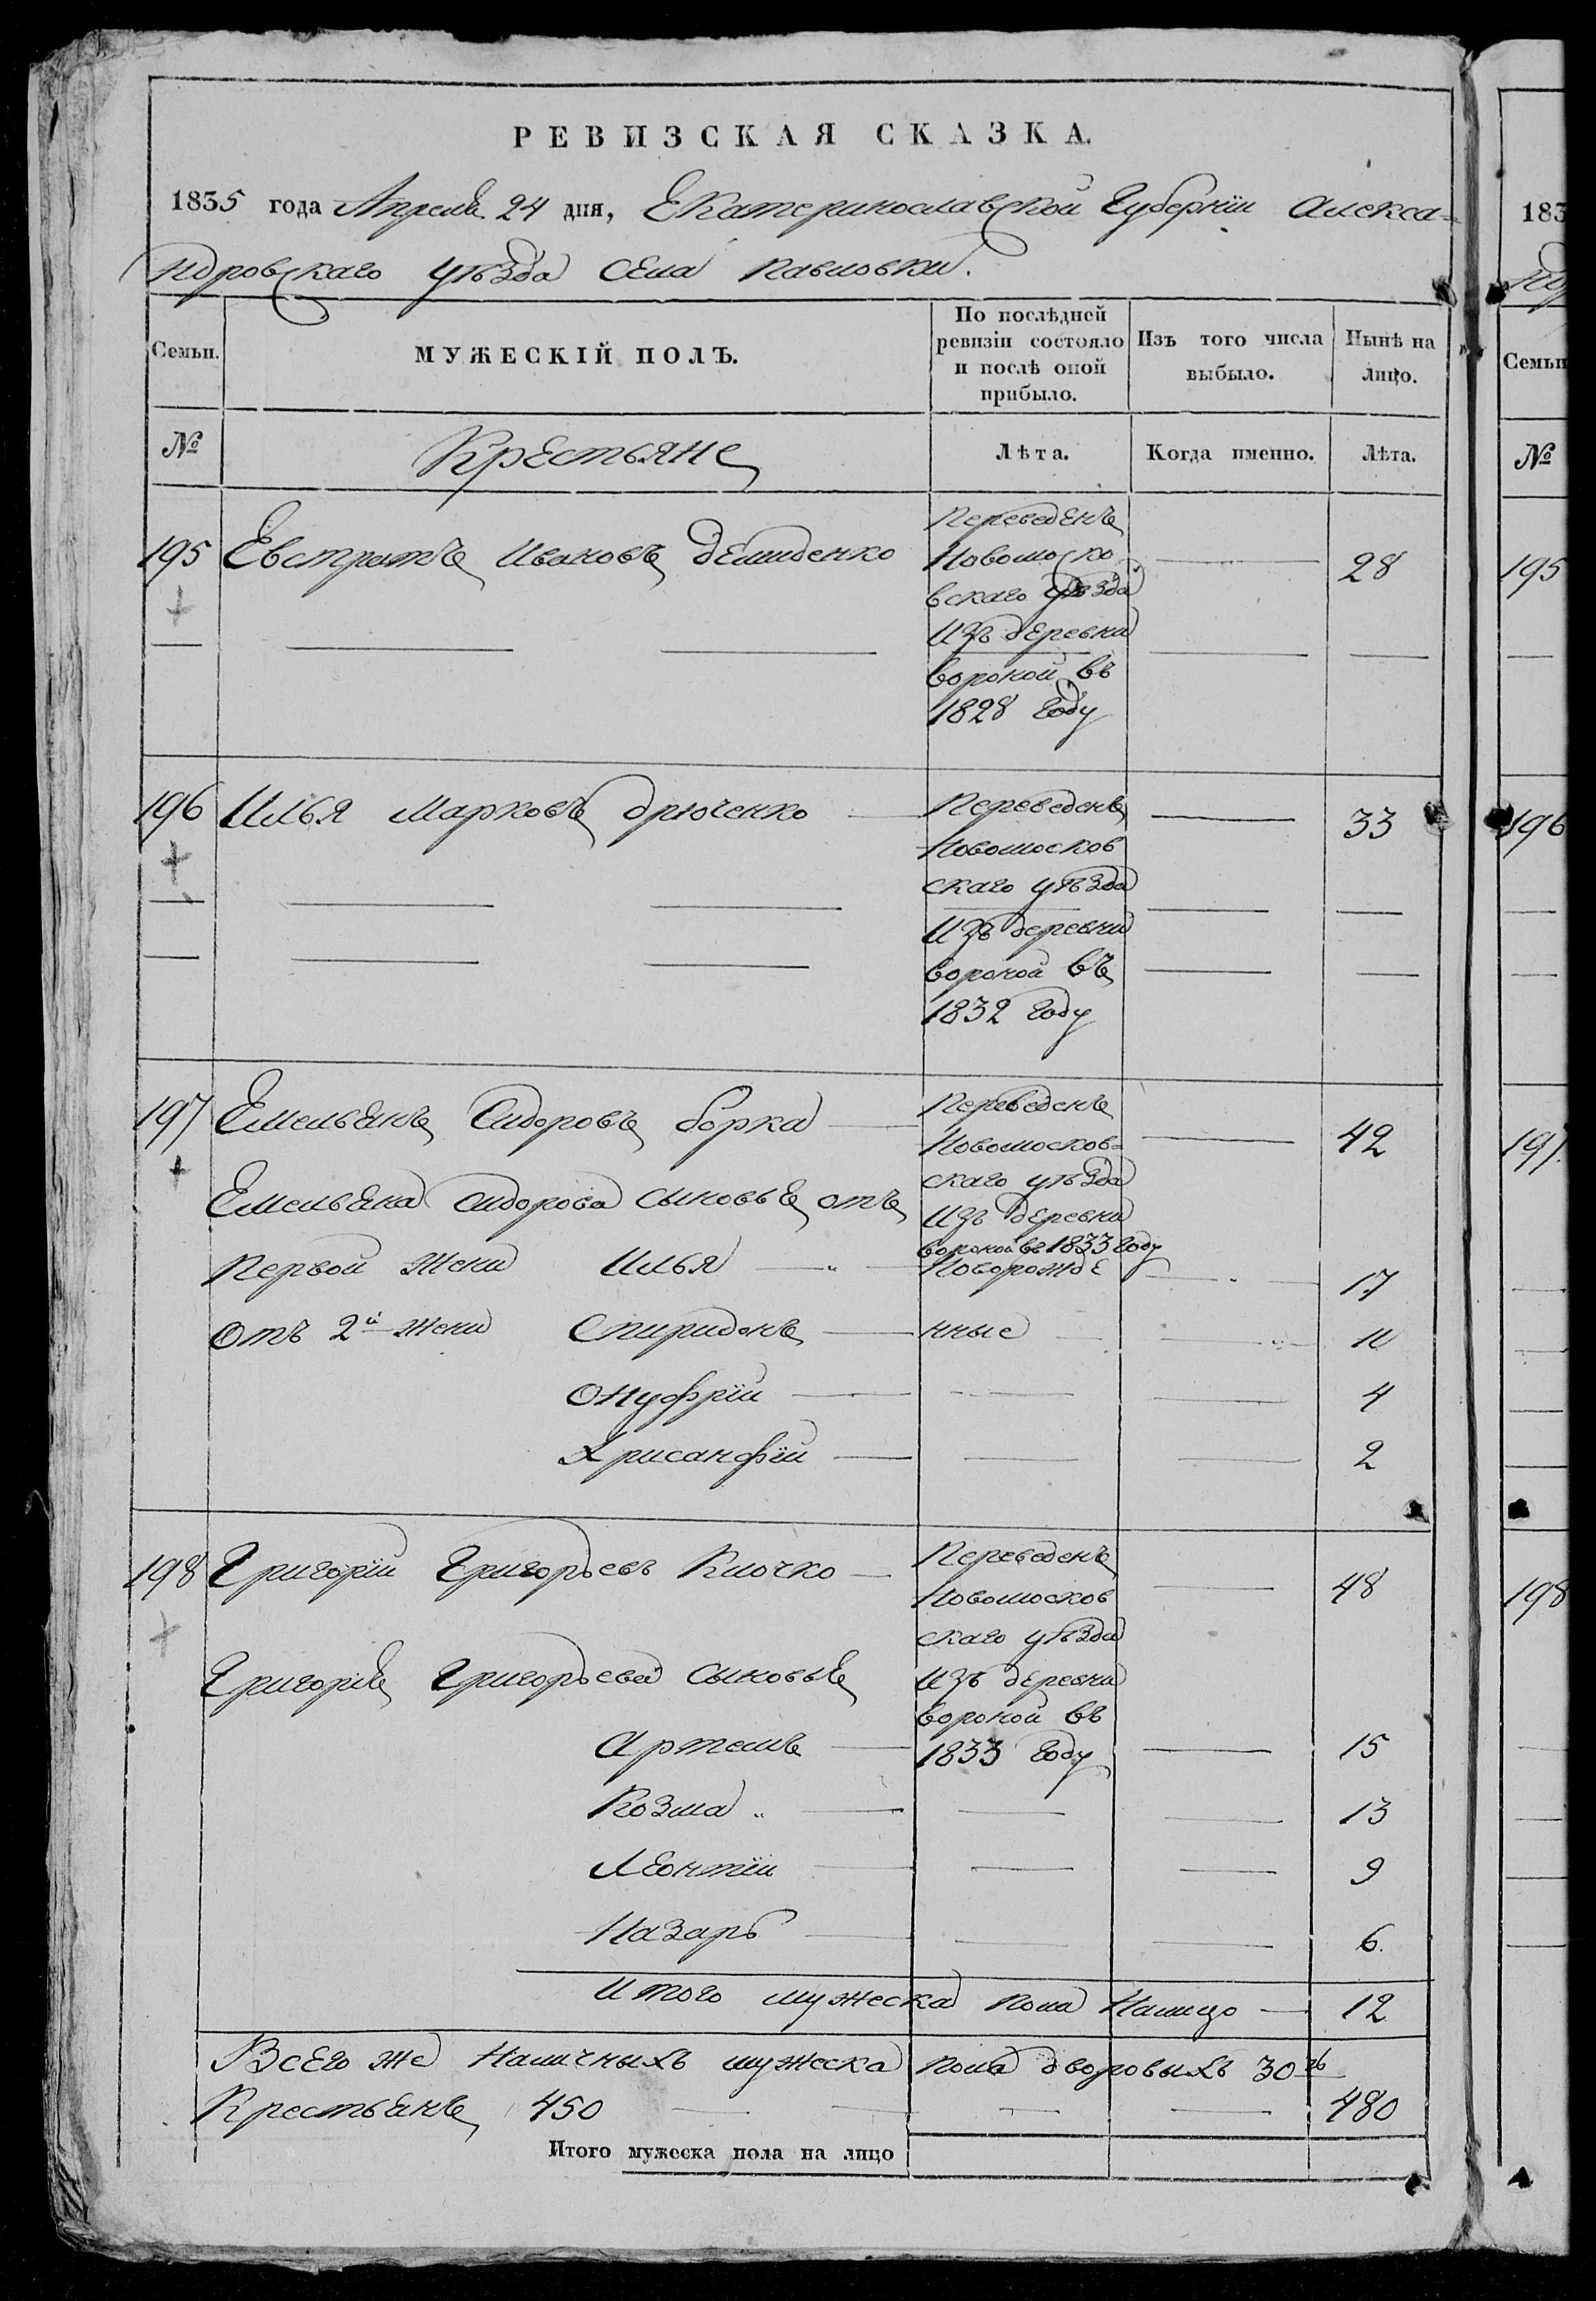 РЕВИЗСКАЯ СКАЗКА.
1835 года Апреля 24 дня, Екатеринославской Губерніи Алекса-
ндровскаго уѣзда села Павловки.
Семьи. МУЖЕСКІЙ ПОЛЪ. По послѣдней ревизіи состояло и послѣ оной прибыло. Изъ того числа выбыло. Нынѣ на лицо.
№ Крестьяне Лѣта. Когда именно. Лѣта.
195 Евстратъ Ивановъ Демиденко 28
Переведенъ
Новомоско
вскаго уѣзда
Изъ деревни
вороной въ
1828 году
196 Илья Марковъ Дрюченко 33
Переведенъ
Новомосков
скаго уѣзда
Изъ деревни
вороной въ
1832 году
197 Емельянъ Сидоровъ борка 42
Переведенъ
Новомосков-
скаго уѣзда
Изъ деревни
вороной въ 1833 году
Емельяна Сидорова сыновья отъ
Первой Жены Илья Новорожде 17
Отъ 2й Жены Спиридонъ нные
Онуфрій 4
Хрисанфій 2
198 Григорій Григорьевъ Клочко 48
Переведенъ
Новомосков
скаго уѣзда
Изъ деревни
вороной въ
1833 году
Григорія Григорьева сыновья
Артемъ 15
Козма 13
Леонтій 9
Назаръ 6.
Итого мужеска пола Налицо 12
Всего же Наличныхъ мужеска пола дворовыхъ 30
Крестьянъ 450 480
Итого мужеска пола на лицо
183
Семьи
№
195
196
197.
198